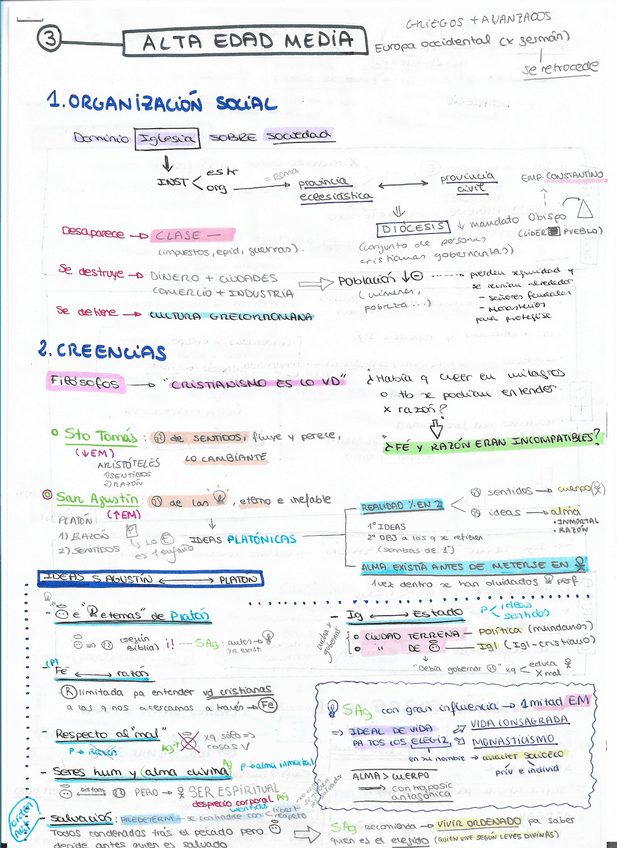 GRIEGOS + AVANZADOS
3 ALTA EDAD MEDIA
Europa occidental (x germán)
se retrocede
1. ORGANIZACIÓN SOCIAL
Dominio Iglesia SOBRE Sociedad
INST < estr
org
= ROMA
provincia eclesiástica
provincia civil
EMP. CONSTANTINO
DIÓCESIS
(conjunto de personas cristianas gobernantas)
↓ mandado Obispo
(LÍDER PUEBLO)
Desaparece → CLASE —
(impuestos, epid, guerras).
Se destruye → DINERO + CIUDADES
COMERCIO + INDUSTRIA
Población ↓
pobreza...)
pierden seguridad y
se reunían alrededor
- señores feudales
- Monasterios
para protegerse
Se detiene → CULTURA GRECORROMANA
2. CREENCIAS
Filósofos → "CRISTIANISMO ES LO VD"
¿Había q creer en milagros
o tb se podían entender
x razón?
¿FÉ Y RAZÓN ERAN INCOMPATIBLES?
Sto Tomás: de SENTIDOS, fluye y perece,
(↓EM)
LO CAMBIANTE
ARISTÓTELES
1) SENTIDOS
2) RAZÓN
San Agustín: de las , eterno e inefable
(↑EM)
PLATÓN:
1) RAZÓN
2) SENTIDOS
IDEAS PLATÓNICAS
REALIDAD % EN 2
sentidos → cuerpo
ideas → alma
• INMORTAL
• RAZÓN
1º IDEAS
2º OBJ a los q se refieren
(sombras de 1º)
ALMA EXISTÍA ANTES DE METERSE EN
1 vez dentro se han olvidados
IDEAS S. AGUSTÍN ↔ PLATON
- e "R eternas" de Platón
(según Biblia)
SAg: antes
ya exist.
- Fe ↔ razón
(R) limitada pa entender vd cristianas
a las q nos acercamos a través → (Fe)
- Respecto al "mal"
P → Razón
xq sólo =>
cosas √
- Seres hum y (alma divina)
P → alma inmortal
PERO → SER ESPIRITUAL
desprecio corporal
- Salvación: PREDETERM
Todos condenados trás el pecado pero
decide antes quien es salvado
- Ig ↔ Estado
P < ideas
sentidos
CIUDAD TERRENA — POLÍTICA (mundanos)
" DE — Igl (Igl-cristiano)
"Debía gobernar " xq < educa
x mal
SAg con gran influencia → 1 mitad EM
=> IDEAL DE VIDA
PA TOS LOS ELEGIZ
VIDA CONSAGRADA
MONASTICISMO
en su nombre → carácter sacero
priv e individ
ALMA > CUERPO
contraposic
antagónica
SAg recomienda → VIVIR ORDENADO pa saber
quien es el elegido (QUIEN VIVE SEGÚN LEYES DIVINAS)